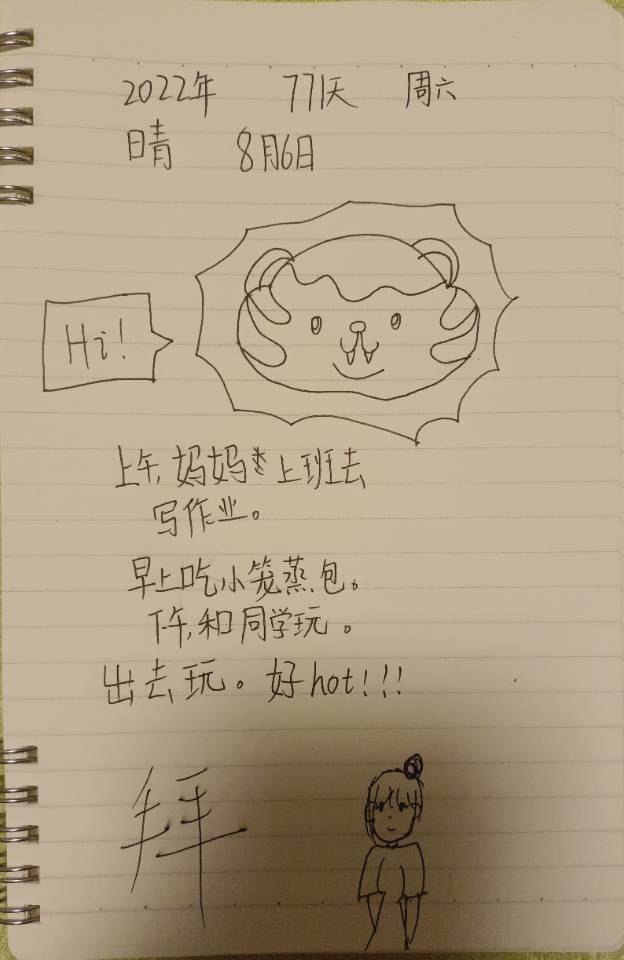 2022年 771天 周六
晴 8月6日
Hi!
上午,妈妈 上班去
写作业。
早上吃小笼蒸包。
下午,和同学玩。
出去玩。好hot!!!
拜